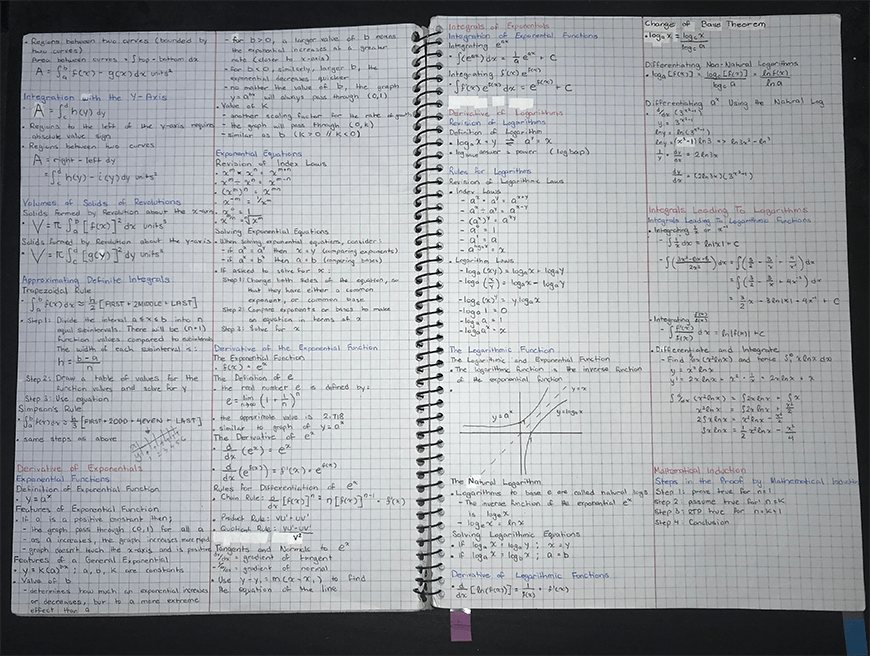 • Regions between two curves (bounded by
two curves)
Area between curves = ∫top - bottom dx
A = ∫ᵇₐ f(x) - g(x) dx units²
Integration with the Y-Axis
• A = ∫ᵈ꜀ h(y) dy
• Regions to the left of the y-axis require
absolute value sign
• Regions between two curves
A = right - left dy
= ∫ᵈ꜀ h(y) - i(y) dy units²
Volumes of Solids of Revolutions
Solids formed by Revolution about the x-axis
• V = π ∫ᵇₐ [f(x)]² dx units²
Solids formed by Revolution about the y-axis
• V = π ∫ᵈ꜀ [g(y)]² dy units²
Approximating Definite Integrals
Trapezoidal Rule
• ∫ᵇₐ f(x) dx ≈ h/2 [FIRST + 2MIDDLE + LAST]
• Step 1: Divide the interval a≤x≤b into n
equal subintervals. There will be (n+1)
function values compared to subintervals
The width of each subinterval is:
h = (b-a)/n
Step 2: Draw a table of values for the
function values and solve for y
Step 3: Use equation
Simpson's Rule
• same steps as above
Derivative of Exponentials
Exponential Functions
Definition of Exponential Function
• y = aˣ
Features of Exponential Function
• If a is a positive constant then;
- the graph pass through (0,1) for all a
- as a increases, the graph increases more rapid
- graph doesn't touch the x-axis and is positive
Features of a General Exponential
• y = k(a)ᵇˣ ; a, b, k are constants
• Value of b
- determines how much an exponential increases
or decreases, but to a more extreme
effect than a
- for b>0, a larger value of b makes
the exponential increase at a greater
rate (closer to x-axis)
- for b<0, similarly, larger b, the
exponential decreases quicker
- no matter the value of b, the graph
y = aᵇˣ will always pass through (0,1)
• Value of K
- another scaling factor for the rate of growth
- the graph will pass through (0,k)
- similar as b (k>0 // k<0)
Exponential Equations
Revision of Index Laws
• xᵐ × xⁿ = xᵐ⁺ⁿ
• xᵐ ÷ xⁿ = xᵐ⁻ⁿ
• (xᵐ)ⁿ = xᵐⁿ
• x⁻ᵐ = 1/xᵐ
Solving Exponential Equations
• When solving exponential equations, consider:
- if aˣ = aʸ then x = y (comparing exponents)
- if aˣ = bˣ then a = b (comparing bases)
• If asked to solve for x:
Step 1: Change both sides of the equation, so
that they have either a common
exponent, or common base
Step 2: Compare exponents or bases to make
an equation in terms of x
Step 3: Solve for x
Derivative of the Exponential Function
The Exponential Function
• f(x) = eˣ
The Defintion of e
• the real number e is defined by:
e = lim n→∞ (1 + 1/n)ⁿ
• the approximate value is 2.718
• similar to graph of y = aˣ
The Derivative of eˣ
• d/dx (eˣ) = eˣ
• d/dx (eᶠ⁽ˣ⁾) = f'(x) × eᶠ⁽ˣ⁾
Rules for Differentiation of eˣ
• Chain Rule: d/dx [f(x)]ⁿ = n[f(x)]ⁿ⁻¹ × f'(x)
• Product Rule: vu' + uv'
• Quotient Rule: (vu' - uv')/v²
Tangents and Normals to eˣ
• dy/dx = gradient of tangent
= gradient of normal
• Use y-y₁ = m(x-x₁) to find
the equation of the line
Integrals of Exponentials
Integration of Exponential Functions
Integrating eᵃˣ
• ∫(eᵃˣ) dx = 1/a eᵃˣ + C
Integrating f'(x)eᶠ⁽ˣ⁾
• ∫f'(x) eᶠ⁽ˣ⁾ dx = eᶠ⁽ˣ⁾ + C
Derivative of Logarithms
Revision of Logarithms
Definition of Logarithm
• logₐx = y ⇌ aʸ = x
answer = power (logbap)
Rules for Logarithms
Revision of Logarithmic Laws
• Index Laws
- aˣ × aʸ = aˣ⁺ʸ
- aˣ ÷ aʸ = aˣ⁻ʸ
- (aˣ)ʸ = aˣʸ
- a⁰ = 1
- a¹ = a
• Logarithm Laws
- logₐ(xy) = logₐx + logₐy
- logₐ(x/y) = logₐx - logₐy
- logₐ(x)ʸ = y logₐx
- logₐ1 = 0
- logₐa = 1
The Logarithmic Function
The Logarithmic and Exponential Function
• The logarithmic function is the inverse function
of the exponential function
y = x
y = aˣ
y = logₐx
The Natural Logarithm
• Logarithms to base e are called natural logs
- The inverse function of the exponential eˣ
is logₑx
- logₑx = ln x
Solving Logarithmic Equations
• If logₐx = logₐy ; x = y
• If logₐx = logᵦx ; a = b
Derivative of Logarithmic Functions
• d/dx [ln(f(x))] = 1/f(x) × f'(x)
Change of Base Theorem
• logₐx = log꜀x / log꜀a
Differentiating Non-Natural Logarithms
• logₐ[f(x)] = logₑ[f(x)] / logₑa = ln f(x) / ln a
Differentiating aˣ Using the Natural Log
Integrals Leading To Logarithms
Integrals Leading To Logarithmic Functions
• Integrating 1/x or x⁻¹
- ∫ 1/x dx = ln|x| + C
• Integrating f'(x)/f(x)
- ∫ f'(x)/f(x) dx = ln|f(x)| + C
• Differentiate and Integrate
Mathematical Induction
Steps in the Proof by Mathematical Induction
Step 1: prove true for n=1
Step 2: assume true for n=k
Step 3: RTP true for n=k+1
Step 4: Conclusion